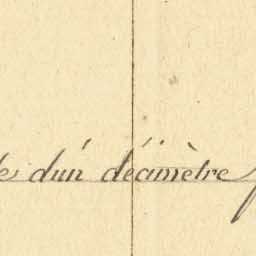 d'un décimètre